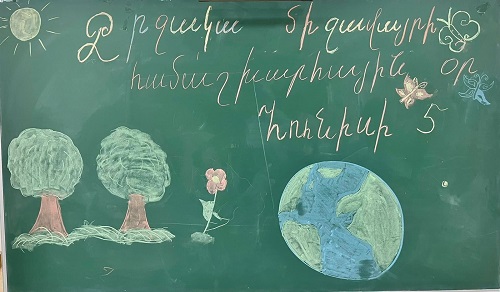 Շրջակա միջավայրի
համաշխարհային օր
Հունիսի 5